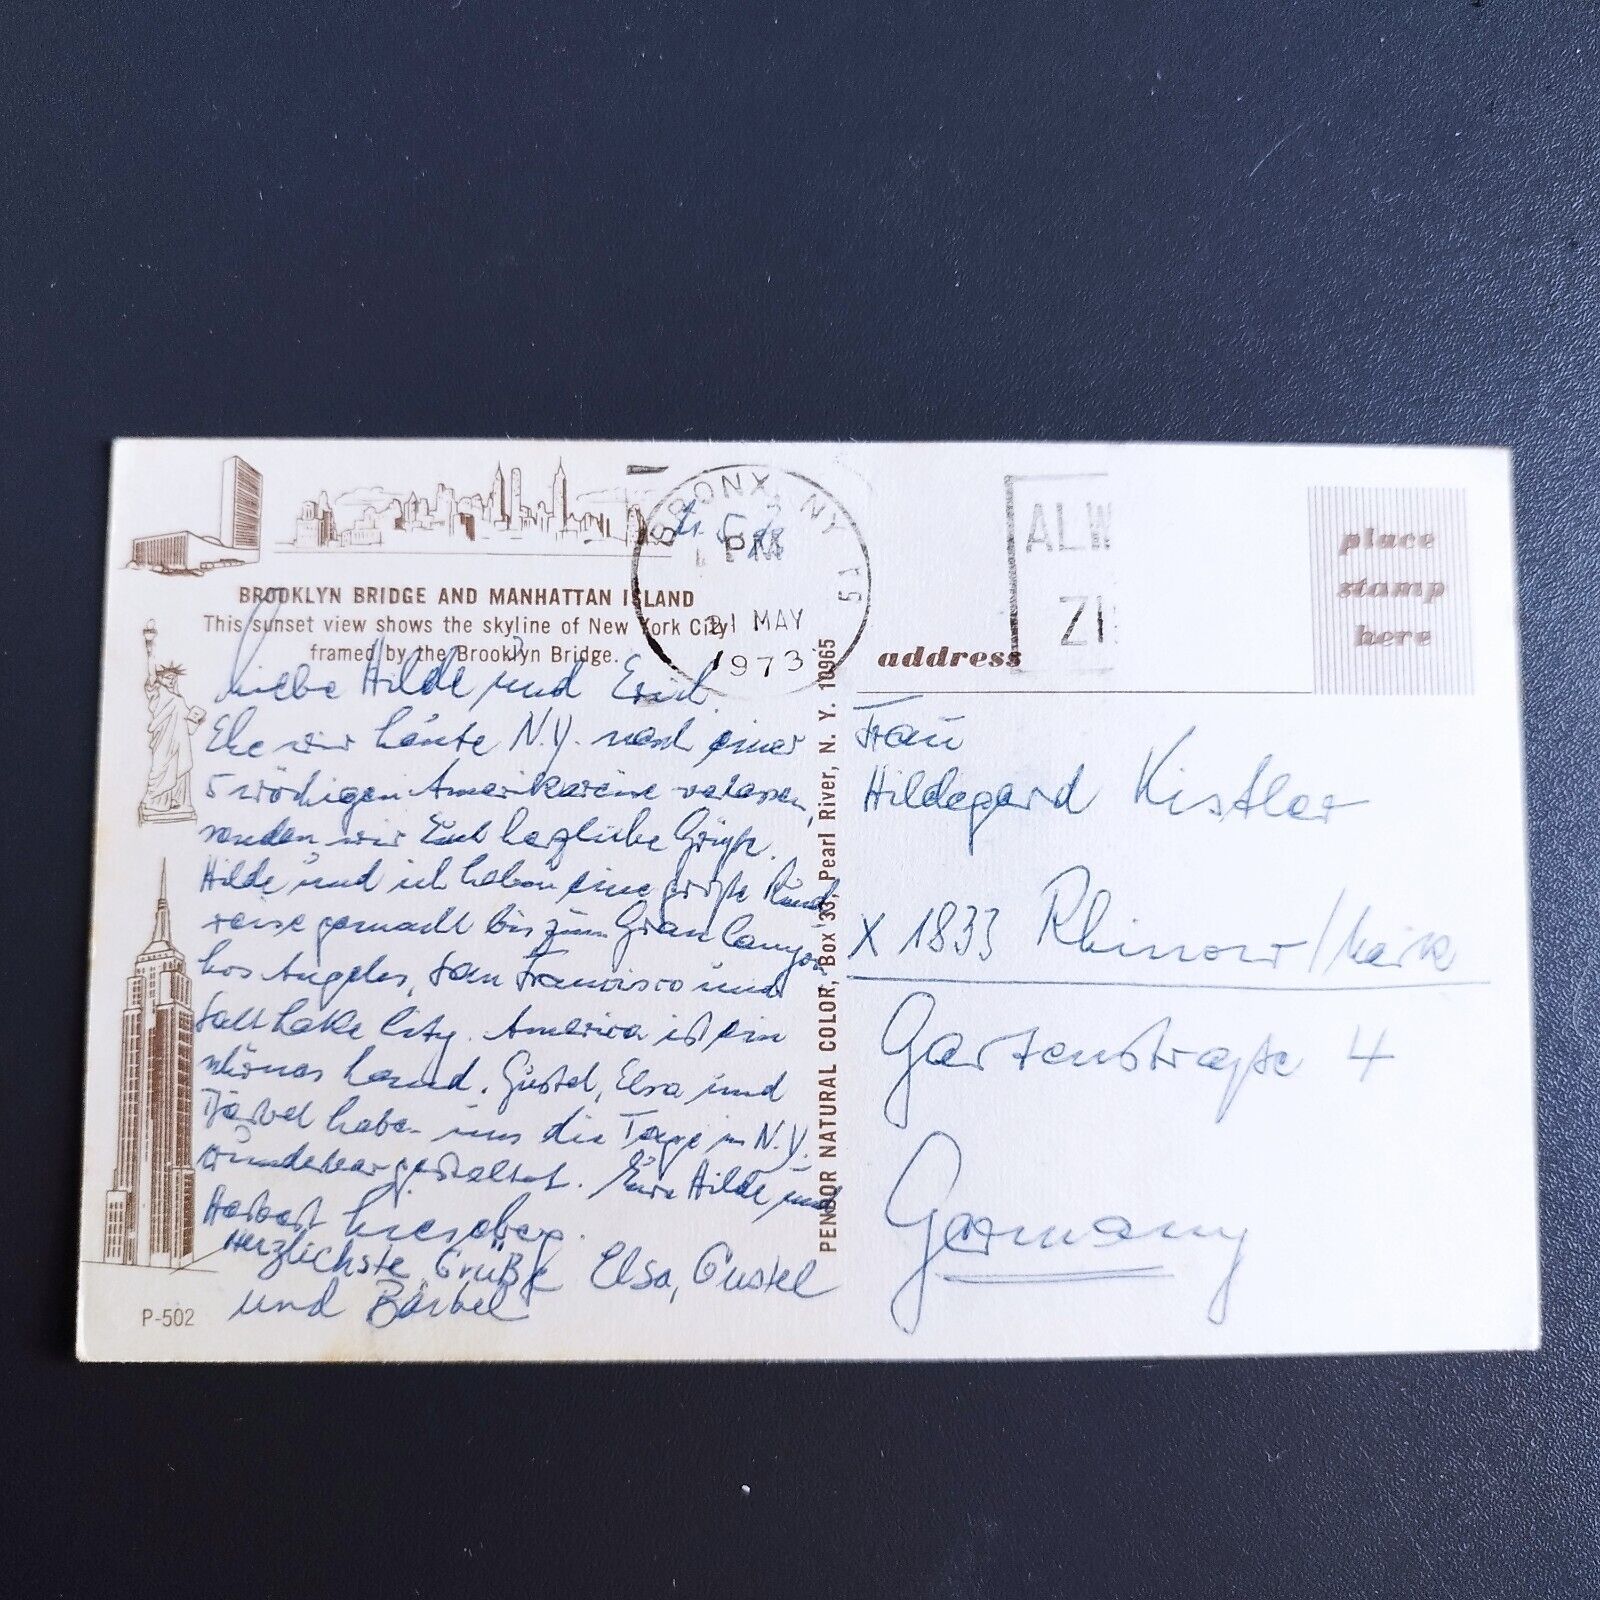 BROOKLYN BRIDGE AND MANHATTAN ISLAND
This sunset view shows the skyline of New York City
framed by the Brooklyn Bridge.
Liebe Hilde und Erich.
Ehe wir heute N.Y. nach einer
5 wöchigen Amerikareise verlassen,
senden wir Euch herzliche Grüße.
Hilde und ich haben eine große Rund
reise gemacht bis zum Gran Canyon
Los Angeles, San Francisco und
Salt Lake City. America ist ein
schönes Land. Gustel, Elsa und
Bärbel haben uns die Tage in N.Y.
wunderbar gestaltet. Eure Hilde und
Herbert
Herzlichste Grüße Elsa, Gustel
und Bärbel
P-502
PENDOR NATURAL COLOR, Box 33, Pearl River, N. Y. 10965
BRONX, NY
PM
21 MAY
1973
ALW
ZI
place
stamp
here
address
Frau
Hildegard Kistler
X 1833 Rhinow/Mark
Gartenstraße 4
Germany